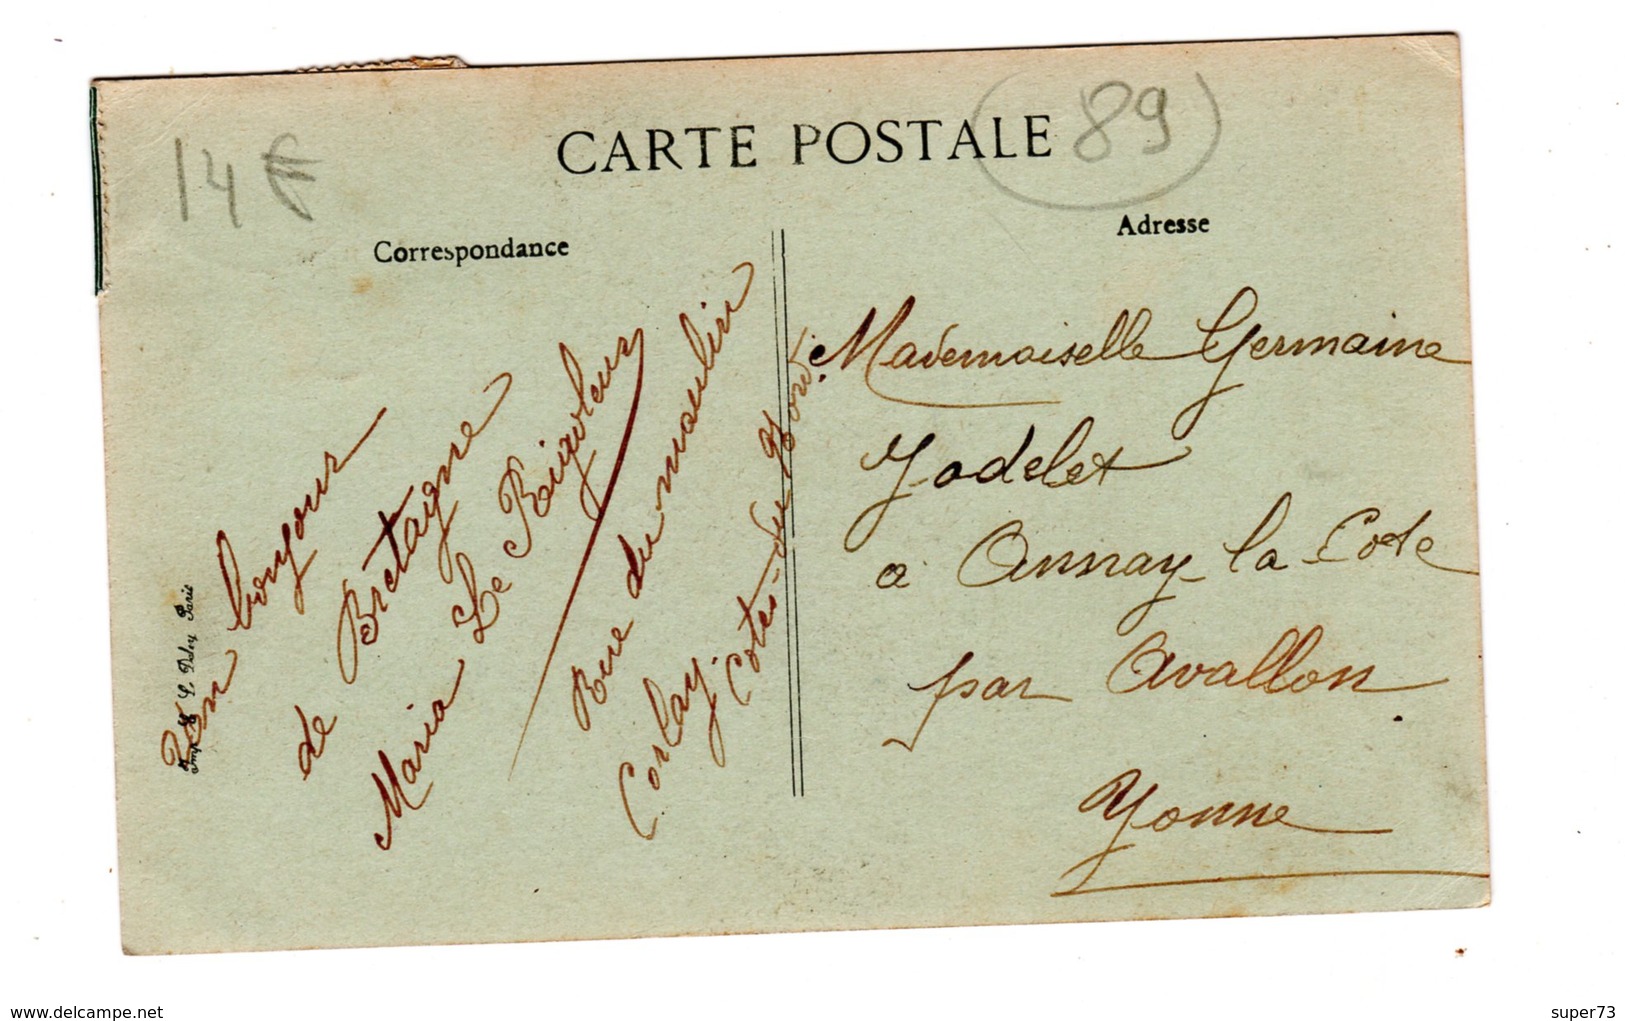 14 €
CARTE POSTALE
89
Correspondance
Adresse
Un bonjour
de Bretagne
Maria Le
Rue du moulin
Corlay.
Cotes-du-Nord.
Mademoiselle Germaine
Jodelet
a Annay-la-Cote
par Avallon
Yonne
Imp. L. Delay Paris
www.delcampe.net
super73